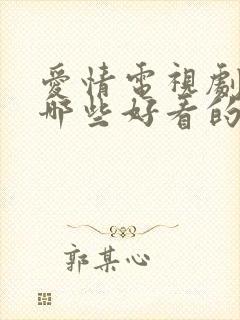 愛情電視劇
哪些好看的
郭某心